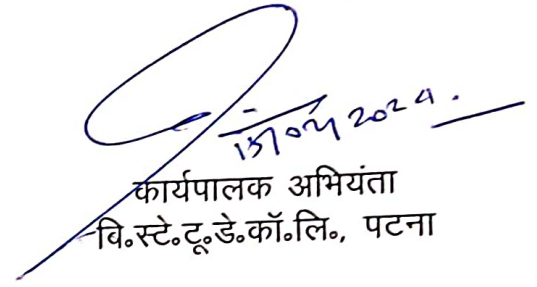 2024.
कार्यपालक अभियंता
वि०स्टे०टू०डे०कॉ०लि०, पटना